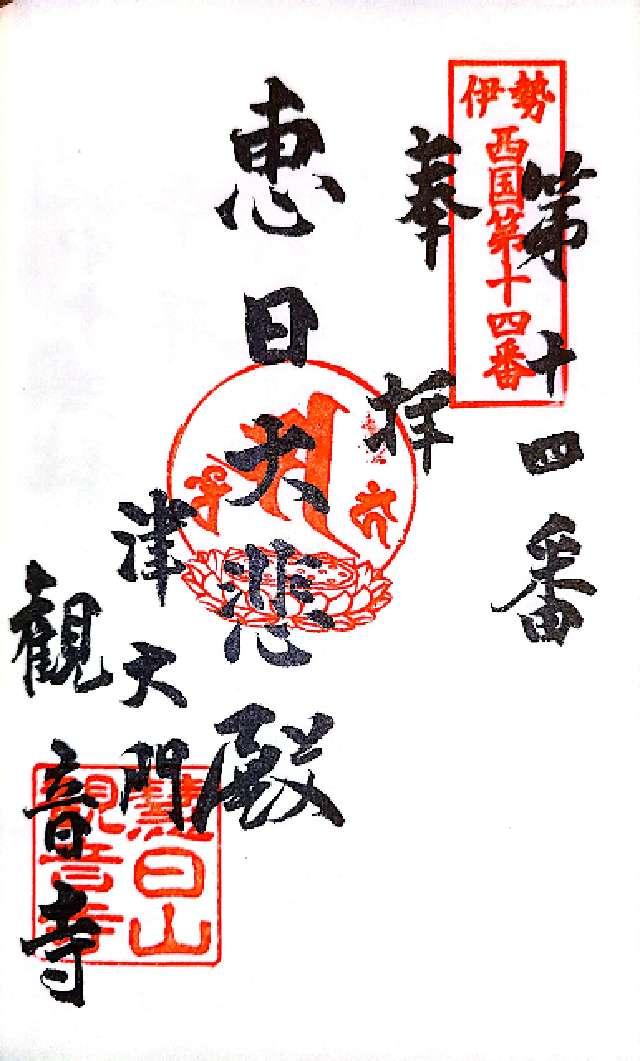 伊勢
西国第十四番
第十四番
奉拝
恵日大悲殿
津大門
観音寺
慧日山
観音寺